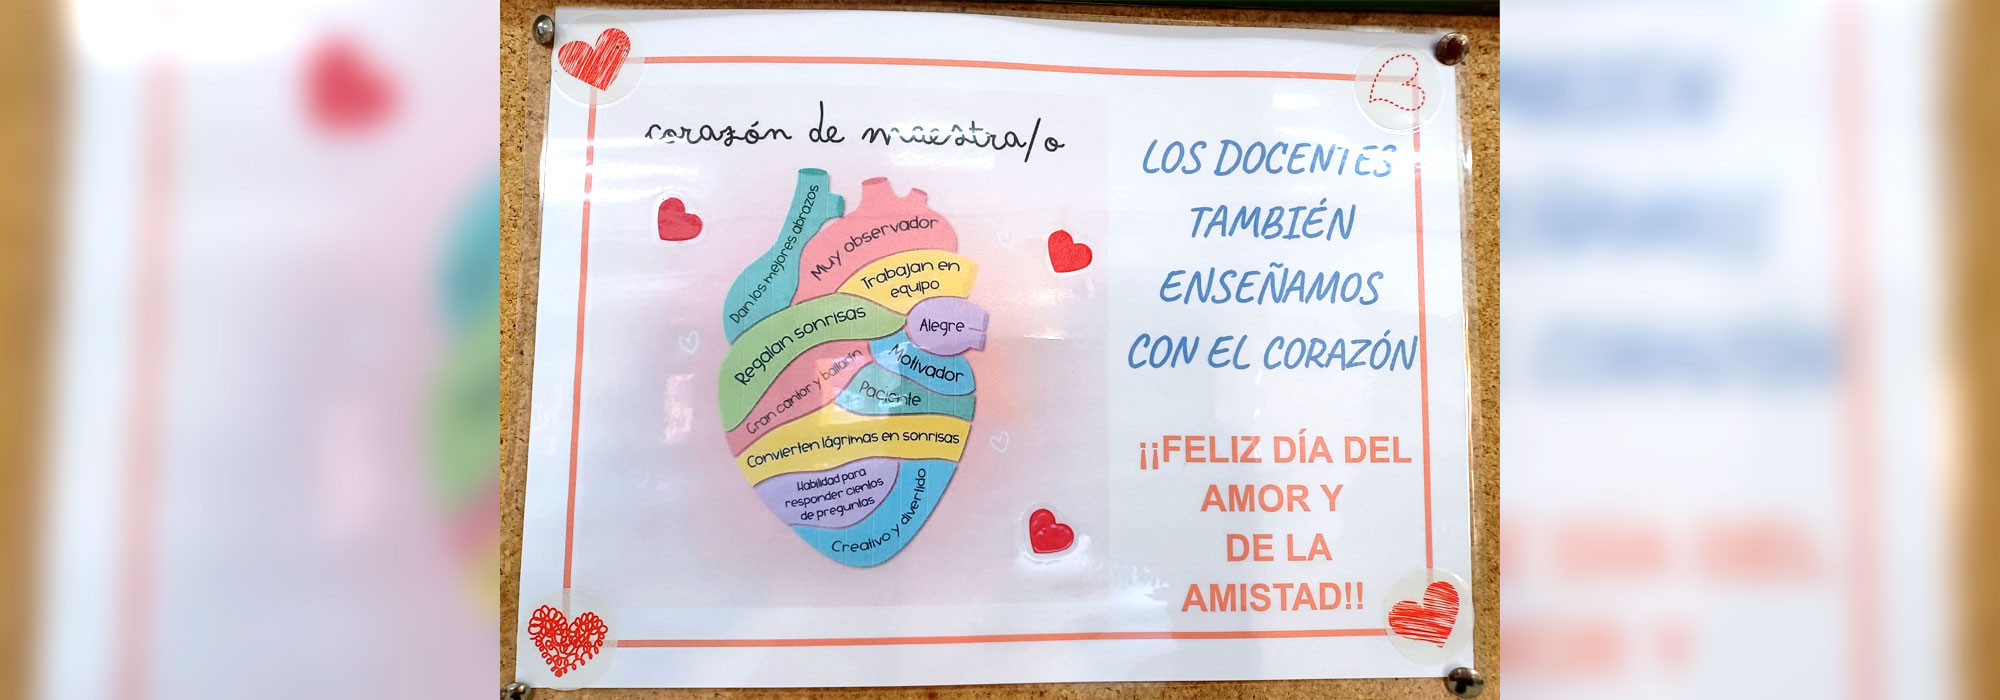 corazón de maestra/o
Dan los mejores abrazos
Muy observador
Trabajan en
equipo
Regalan sonrisas
Alegre
Motivador
Gran cantor y bailarín
Paciente
Convierten lágrimas en sonrisas
Habilidad para
responder cientos
de preguntas
Creativo y divertido
LOS DOCENTES
TAMBIÉN
ENSEÑAMOS
CON EL CORAZÓN
¡¡FELIZ DÍA DEL
AMOR Y
DE LA
AMISTAD!!